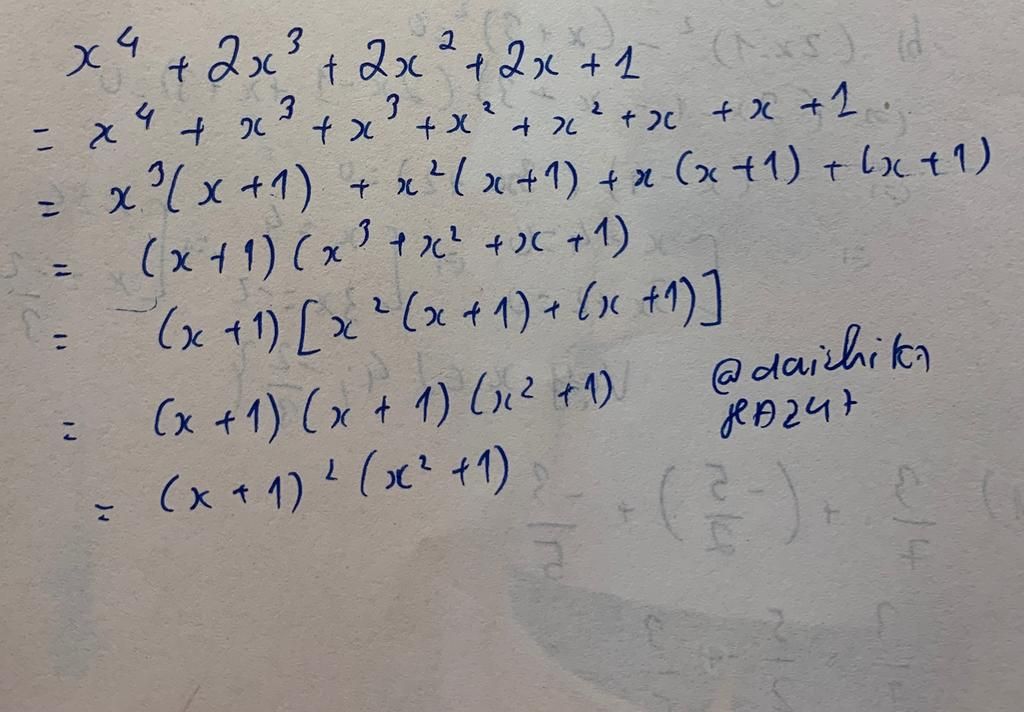 x⁴ + 2x³ + 2x² + 2x + 1
= x⁴ + x³ + x³ + x² + x² + x + x + 1
= x³(x+1) + x²(x+1) + x(x+1) + (x+1)
= (x+1)(x³ + x² + x + 1)
= (x+1)[x²(x+1) + (x+1)]
= (x+1)(x+1)(x²+1)
= (x+1)²(x²+1)